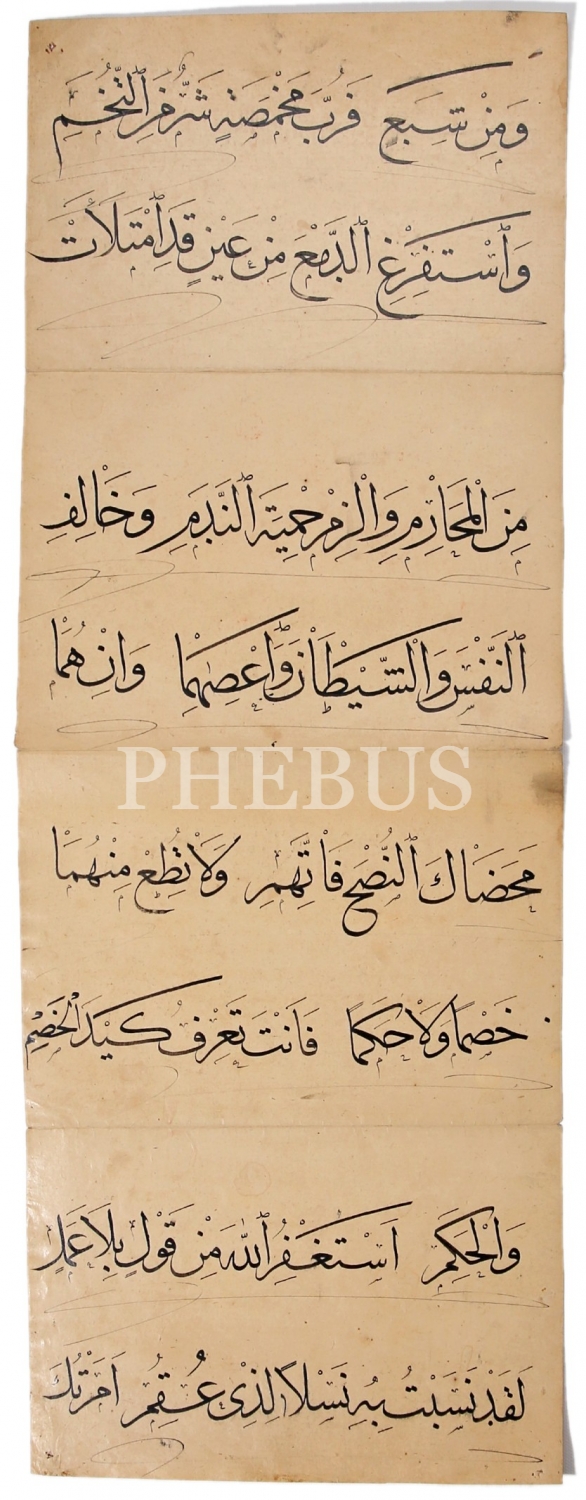 وَمِنْ شِبَعٍ فَرُبَّ مَخْمَصَةٍ شَرٌّ مِنَ ٱلتُّخَمِ
وَٱسْتَفْرِغِ ٱلدَّمْعَ مِنْ عَيْنٍ قَدِ ٱمْتَلَأَتْ
مِنَ ٱلْمَحَارِمِ وَٱلْزِمْ حِمْيَةَ ٱلنَّدَمِ وَخَالِفِ
ٱلنَّفْسَ وَٱلشَّيْطَانَ وَٱعْصِهِمَا وَاِنْ هُمَا
PHEBUS
مَحَضَاكَ ٱلنُّصْحَ فَاتَّهِمِ وَلَا تُطِعْ مِنْهُمَا
خَصْمًا وَلَا حَكَمًا فَاَنْتَ تَعْرِفُ كَيْدَ ٱلْخَصْمِ
وَٱلْحَكَمِ اَسْتَغْفِرُ ٱللّٰهَ مِنْ قَوْلٍ بِلَا عَمَلٍ
لَقَدْ نَسَبْتُ بِهِ نَسْلًا لِذِى عُقُمِ اَمَرْتُكَ